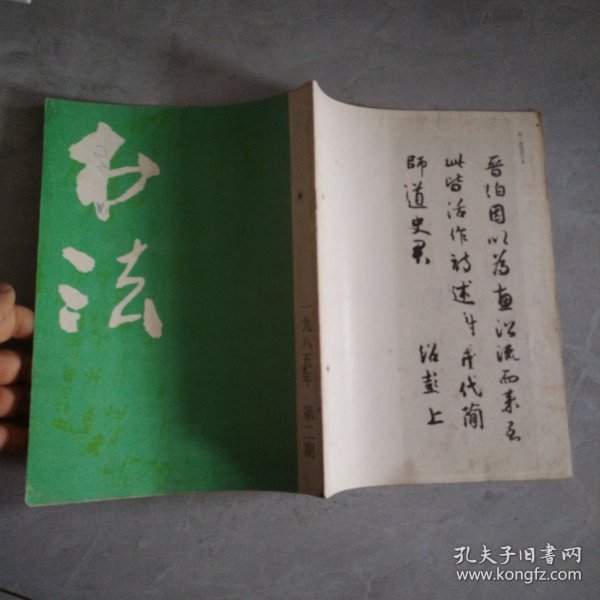 书法
一九八五年 第二期
晋伯因以为直沿流而来至
此皆活作诗述
代简
师道史君
绍彭上
孔夫子旧书网
www.kongfz.com